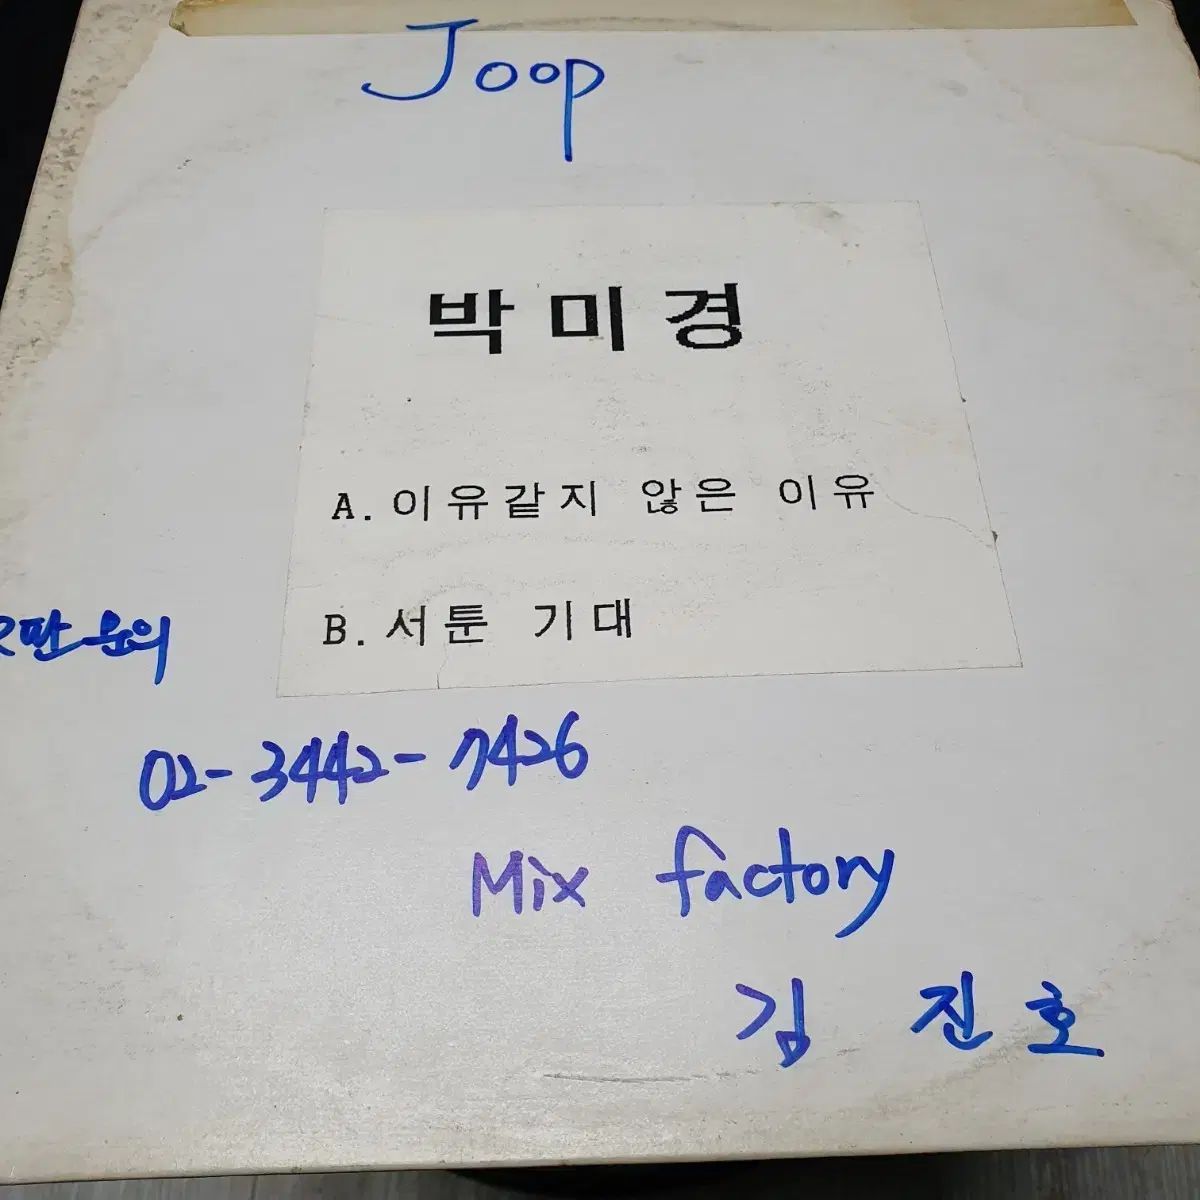 Joop
박미경
A. 이유같지 않은 이유
B. 서툰 기대
판문의
02-3442-7426
Mix factory
김 진호